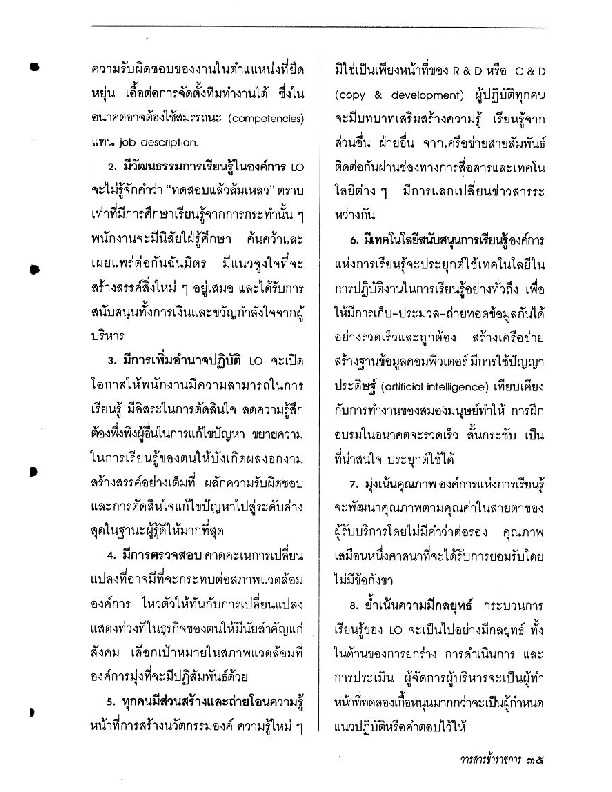 ความรับผิดชอบของงานในตำแหน่งที่ยืด
หยุ่น เอื้อต่อการจัดตั้งทีมทำงานได้ ซึ่งใน
อนาคตอาจต้องใช้สมรรถนะ (competencies)
แทน job description
2. มีวัฒนธรรมการเรียนรู้ในองค์การ LO
จะไม่รู้จักคำว่า "ทดสอบแล้วล้มเหลว" ตราบ
เท่าที่มีการศึกษาเรียนรู้จากการกระทำนั้น ๆ
พนักงานจะมีนิสัยใฝ่รู้ศึกษา ค้นคว้าและ
เผยแพร่ต่อกันฉันมิตร มีแรงจูงใจที่จะ
สร้างสรรค์สิ่งใหม่ ๆ อยู่เสมอ และได้รับการ
สนับสนุนทั้งการเงินและขวัญกำลังใจจากผู้
บริหาร
3. มีการเพิ่มอำนาจปฏิบัติ LO จะเปิด
โอกาสให้พนักงานมีความสามารถในการ
เรียนรู้ มีอิสระในการตัดสินใจ ลดความรู้สึก
ต้องพึ่งพิงผู้อื่นในการแก้ไขปัญหา ขยายความ
ในการเรียนรู้ของตนให้บังเกิดผลงอกงาม
สร้างสรรค์อย่างเต็มที่ ผลักความรับผิดชอบ
และการตัดสินใจแก้ไขปัญหาไปสู่ระดับล่าง
สุดในฐานะผู้รู้ดีให้มากที่สุด
4. มีการตรวจสอบ คาดคะเนการเปลี่ยน
แปลงที่อาจมีที่จะกระทบต่อสภาพแวดล้อม
องค์การ ไหวตัวให้ทันกับการเปลี่ยนแปลง
แสดงท่วงทีในธุรกิจของตนให้มีนัยสำคัญแก่
สังคม เลือกเป้าหมายในสภาพแวดล้อมที่
องค์การมุ่งที่จะมีปฏิสัมพันธ์ด้วย
5. ทุกคนมีส่วนสร้างและถ่ายโอนความรู้
หน้าที่การสร้างนวัตกรรมองค์ ความรู้ใหม่ ๆ
มิใช่เป็นเพียงหน้าที่ของ R & D หรือ C & D
(copy & development) ผู้ปฏิบัติทุกคน
จะมีบทบาทเสริมสร้างความรู้ เรียนรู้จาก
ส่วนอื่น ฝ่ายอื่น จากเครือข่ายสายสัมพันธ์
ติดต่อกันผ่านช่องทางการสื่อสารและเทคโน
โลยีต่าง ๆ มีการแลกเปลี่ยนข่าวสารระ
หว่างกัน
6. มีเทคโนโลยีสนับสนุนการเรียนรู้องค์การ
แห่งการเรียนรู้จะประยุกต์ใช้เทคโนโลยีใน
การปฏิบัติงานในการเรียนรู้อย่างทั่วถึง เพื่อ
ให้มีการเก็บ-ประมวล-ถ่ายทอดข้อมูลกันได้
อย่างรวดเร็วและถูกต้อง สร้างเครือข่าย
สร้างฐานข้อมูลคอมพิวเตอร์ มีการใช้ปัญญา
ประดิษฐ์ (artificial intelligence) เทียบเคียง
กับการทำงานของสมองมนุษย์ทำให้ การฝึก
อบรมในอนาคตจะรวดเร็ว สั้นกระชับ เป็น
ที่น่าสนใจ ประยุกต์ใช้ได้
7. มุ่งเน้นคุณภาพ องค์การแห่งการเรียนรู้
จะพัฒนาคุณภาพตามคุณค่าในสายตาของ
ผู้รับบริการโดยไม่มีคำว่าต่อรอง คุณภาพ
เสมือนหนึ่งศาสนาที่จะได้รับการยอมรับโดย
ไม่มีข้อกังขา
8. ย้ำเน้นความมีกลยุทธ์ กระบวนการ
เรียนรู้ของ LO จะเป็นไปอย่างมีกลยุทธ์ ทั้ง
ในด้านของการยกร่าง การดำเนินการ และ
การประเมิน ผู้จัดการผู้บริหารจะเป็นผู้ทำ
หน้าที่ทดลองเกื้อหนุนมากกว่าจะเป็นผู้กำหนด
แนวปฏิบัติหรือคำตอบไว้ให้
วารสารข้าราชการ ๓๕